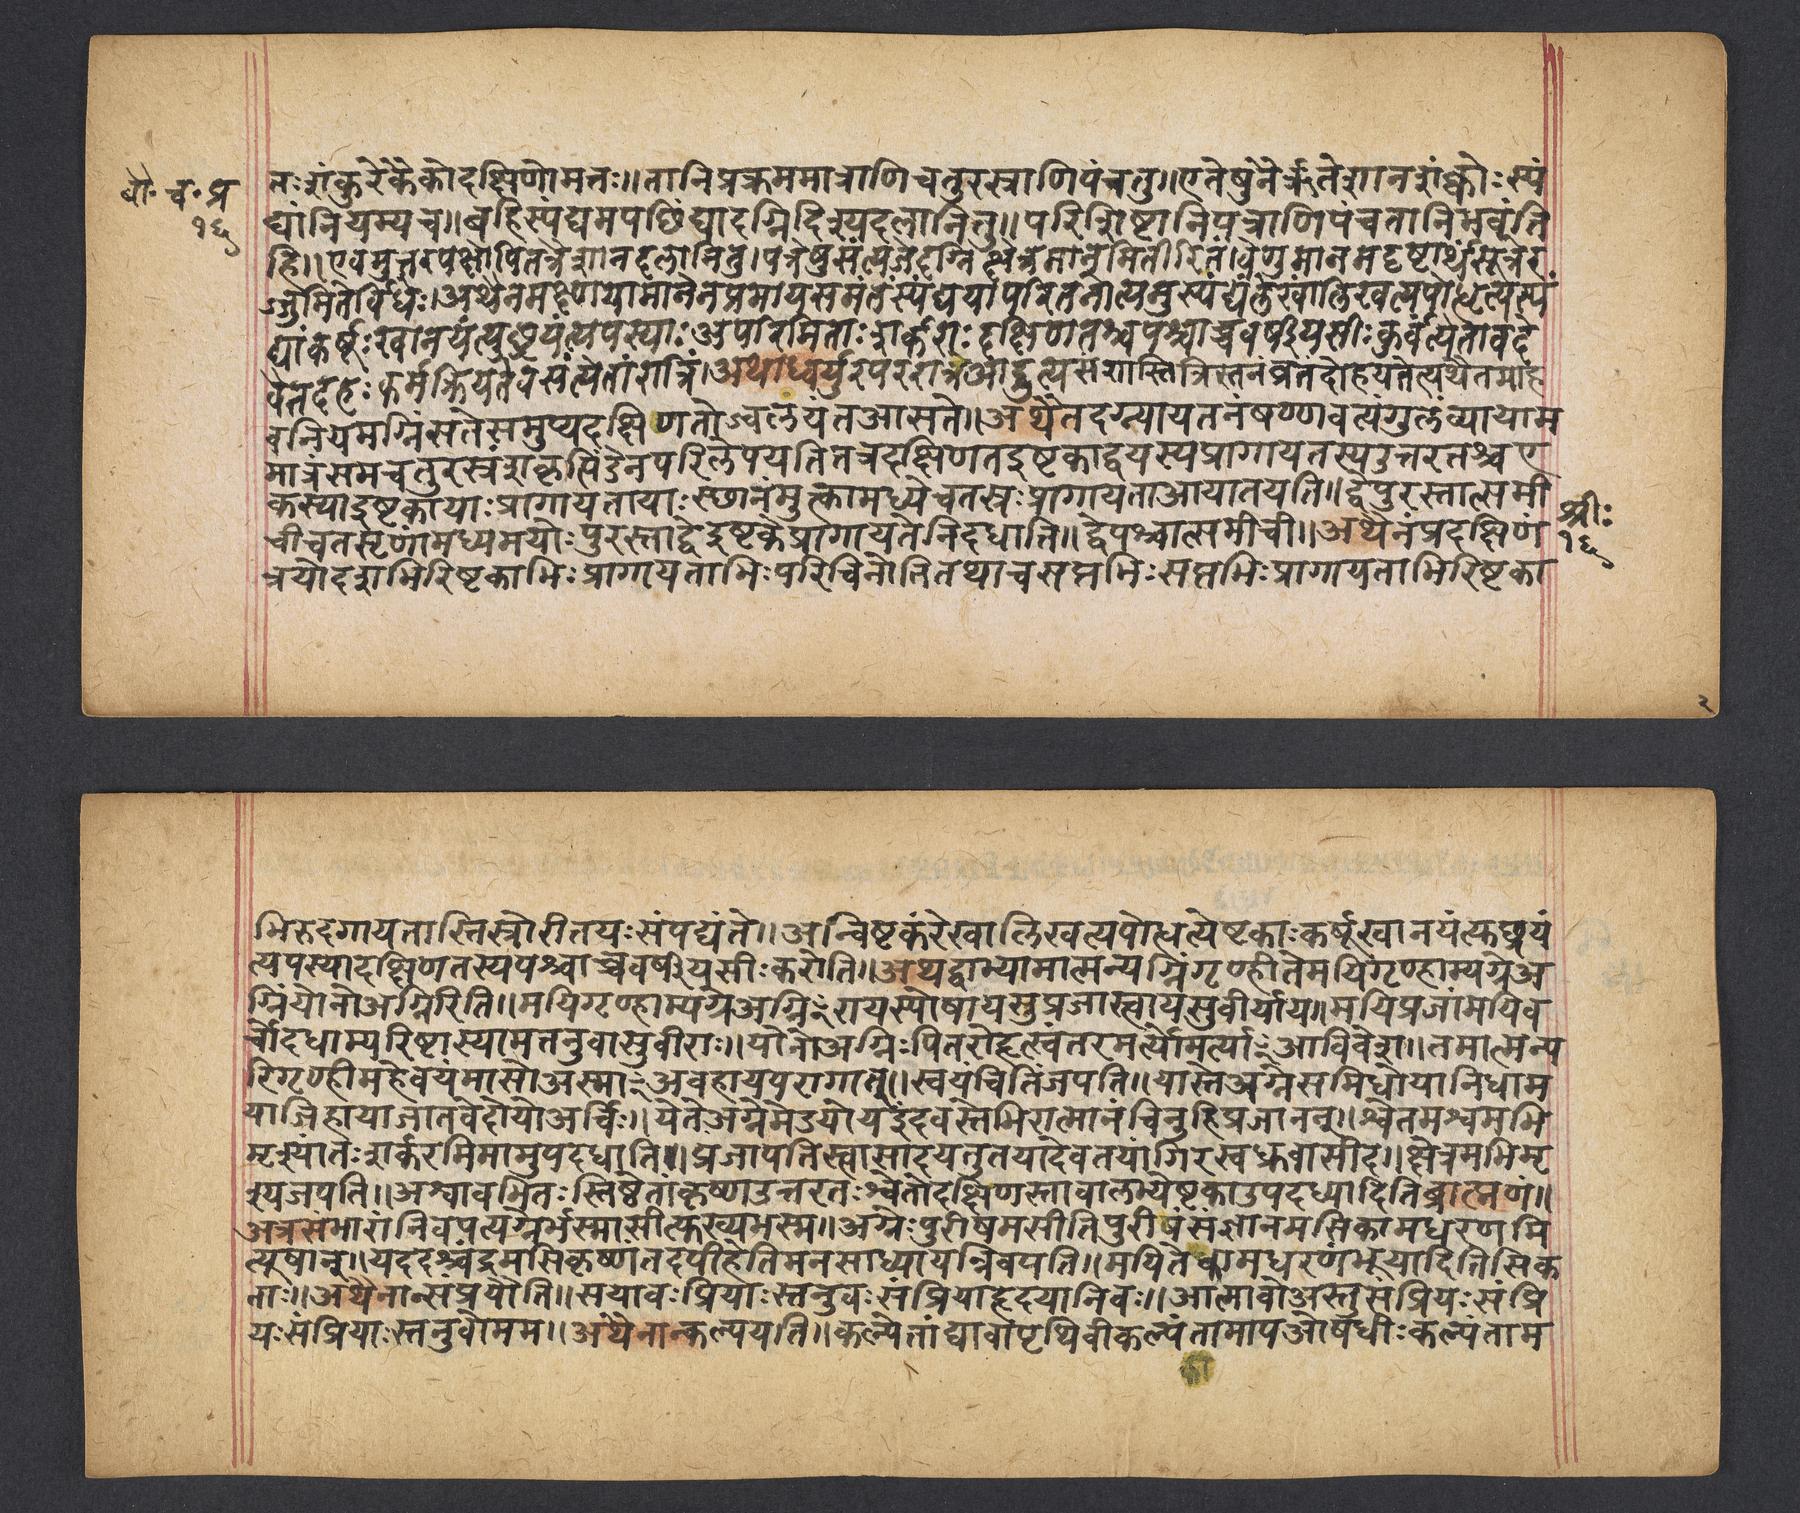 बौ. च. प्र
१६
नःशंकुरेकैकोदक्षिणोमतः॥तानिप्रक्रममात्राणिचतुरस्राणिपंचतु॥एतेषुनैर्ऋतेशानशंक्वोःस्पं
द्यांनियम्यच॥बहिस्पंद्यमपछिंद्यादग्निदिश्यदलानितु॥परिशिष्टानिपत्राणिपंचतानिभवंति
हि॥एवमुत्तरपक्षेपितत्रैशानदलानितु।पत्रेषुसंत्यजेदग्निक्षेत्रमानमितीरितं।वेणुमानमदृष्टार्थंसूत्रर
ज्जुमितेर्विधिः।अथैनमक्ष्णयामानेनप्रमायसमंतंस्पंद्ययापरितनोत्यनुस्पंद्यंलेखांलिखत्यपोधृत्यस्पं
द्यांकर्षूःखानयंत्युछ्रयंत्यपस्याःअपरिमिताःशर्कराःदक्षिणतश्चपश्चाच्चवर्षीयसीःकुर्वंत्येतावदे
वैतदहःकर्मक्रियतेवसंत्येतांरात्रिं।अथाध्वर्युरपररात्रआद्रुत्यसंशास्तित्रिस्तनंव्रतंदोहयतेत्यथैतमाह
वनियमग्निंसतेसमुप्यदक्षिणतोज्वलयंतआसते॥अथैतदग्न्यायतनंषण्णवत्यंगुलंव्यायाम
मात्रंसमचतुरस्रंशकृत्पिंडेनपरिलेपयतितत्रदक्षिणतइष्टकाद्वयस्यप्रागायतस्यउत्तरतश्चए
कस्याइष्टकायाःप्रागायतायाःस्छानंमुत्क्वामध्येचतस्रःप्रागायताआयातयति॥द्वेपुरस्तात्समी
चीचतसृणांमध्यमयोःपुरस्ताद्वेइष्टकेप्रागायतेनिदधाति॥द्वेपश्चात्समीची॥अथैनंप्रदक्षिणं
त्रयोदशभिरिष्टकाभिःप्रागायताभिःपरिचिनोतितथाचसप्तभिःसप्तभिःप्रागायताभिरिष्टका
श्रीः
१६
२
भिरुदगायतास्तिस्रोरीतयःसंपद्यंते॥अन्विष्टकंरेखालिखत्यपोधत्येष्टकाःकर्षूखानयंत्यछ्रयं
त्यपस्यादक्षिणतस्यपश्चाच्चवर्षीयसीःकरोति॥अथद्वाभ्यामात्मन्यग्निंगृण्हीतेमयिगृण्हाम्यग्रेअ
ग्निंयोनोअग्निरिति॥मयिगृण्हाम्यग्रेअग्निꣳरायस्पोषायसुप्रजास्त्वायसुवीर्याय॥मयिप्रजांमयिव
र्चोदधाम्यरिष्टास्यामतनुवासुवीराः॥योनोअग्निःपितरोहृत्स्वंतरमर्त्योमर्त्याꣳआविवेश॥तमात्मन्प
रिगृण्हीमहेवयंमासोअस्माꣳअवहायपरागात्॥स्वयंचितिंजपति॥यास्तेअग्नेसमिधोयानिधाम
याजिह्वायाजातवेदोयोअर्चिः॥येतेअग्नेमेडयोयइंदवस्तेभिरात्मानंचिनुहिप्रजानन्॥श्वेतमश्वमभि
मृश्यांतःशर्करमिमामुपदधाति॥प्रजापतिस्त्वासादयतुतयादेवतयांगिरस्वध्रुवासीद॥क्षेत्रमभिमृ
श्यजपति॥अश्वावभितःस्तिष्ठेतांकृष्णउत्तरतःश्वेतोदक्षिणस्तावालभ्येष्टकाउपदध्यादितिब्राह्मणं॥
अत्रसंभारान्निवपत्यग्नेर्भस्मासीत्फख्यमस्म॥अग्नेःपुरीषमसीतिपुरीषंसंज्ञानमसिकामधरणमि
त्यूषान्॥यददश्चंद्रमसिकृष्णंतदपीहेतिमनसाध्यायन्निवपति॥मयितेकामधरणंभूयादितिसिक
ताः॥अथैनान्संप्रयौति॥सयावःप्रियाःस्तनुवःसंप्रियाहृदयानिवः॥आत्मावोअस्तुसंप्रियःसंप्रि
यःसंप्रियाःस्तनुवोमम॥अथैनान्कल्पयति॥कल्पेतांद्यावापृथिवीकल्पंतामापओषधीःकल्पंताम